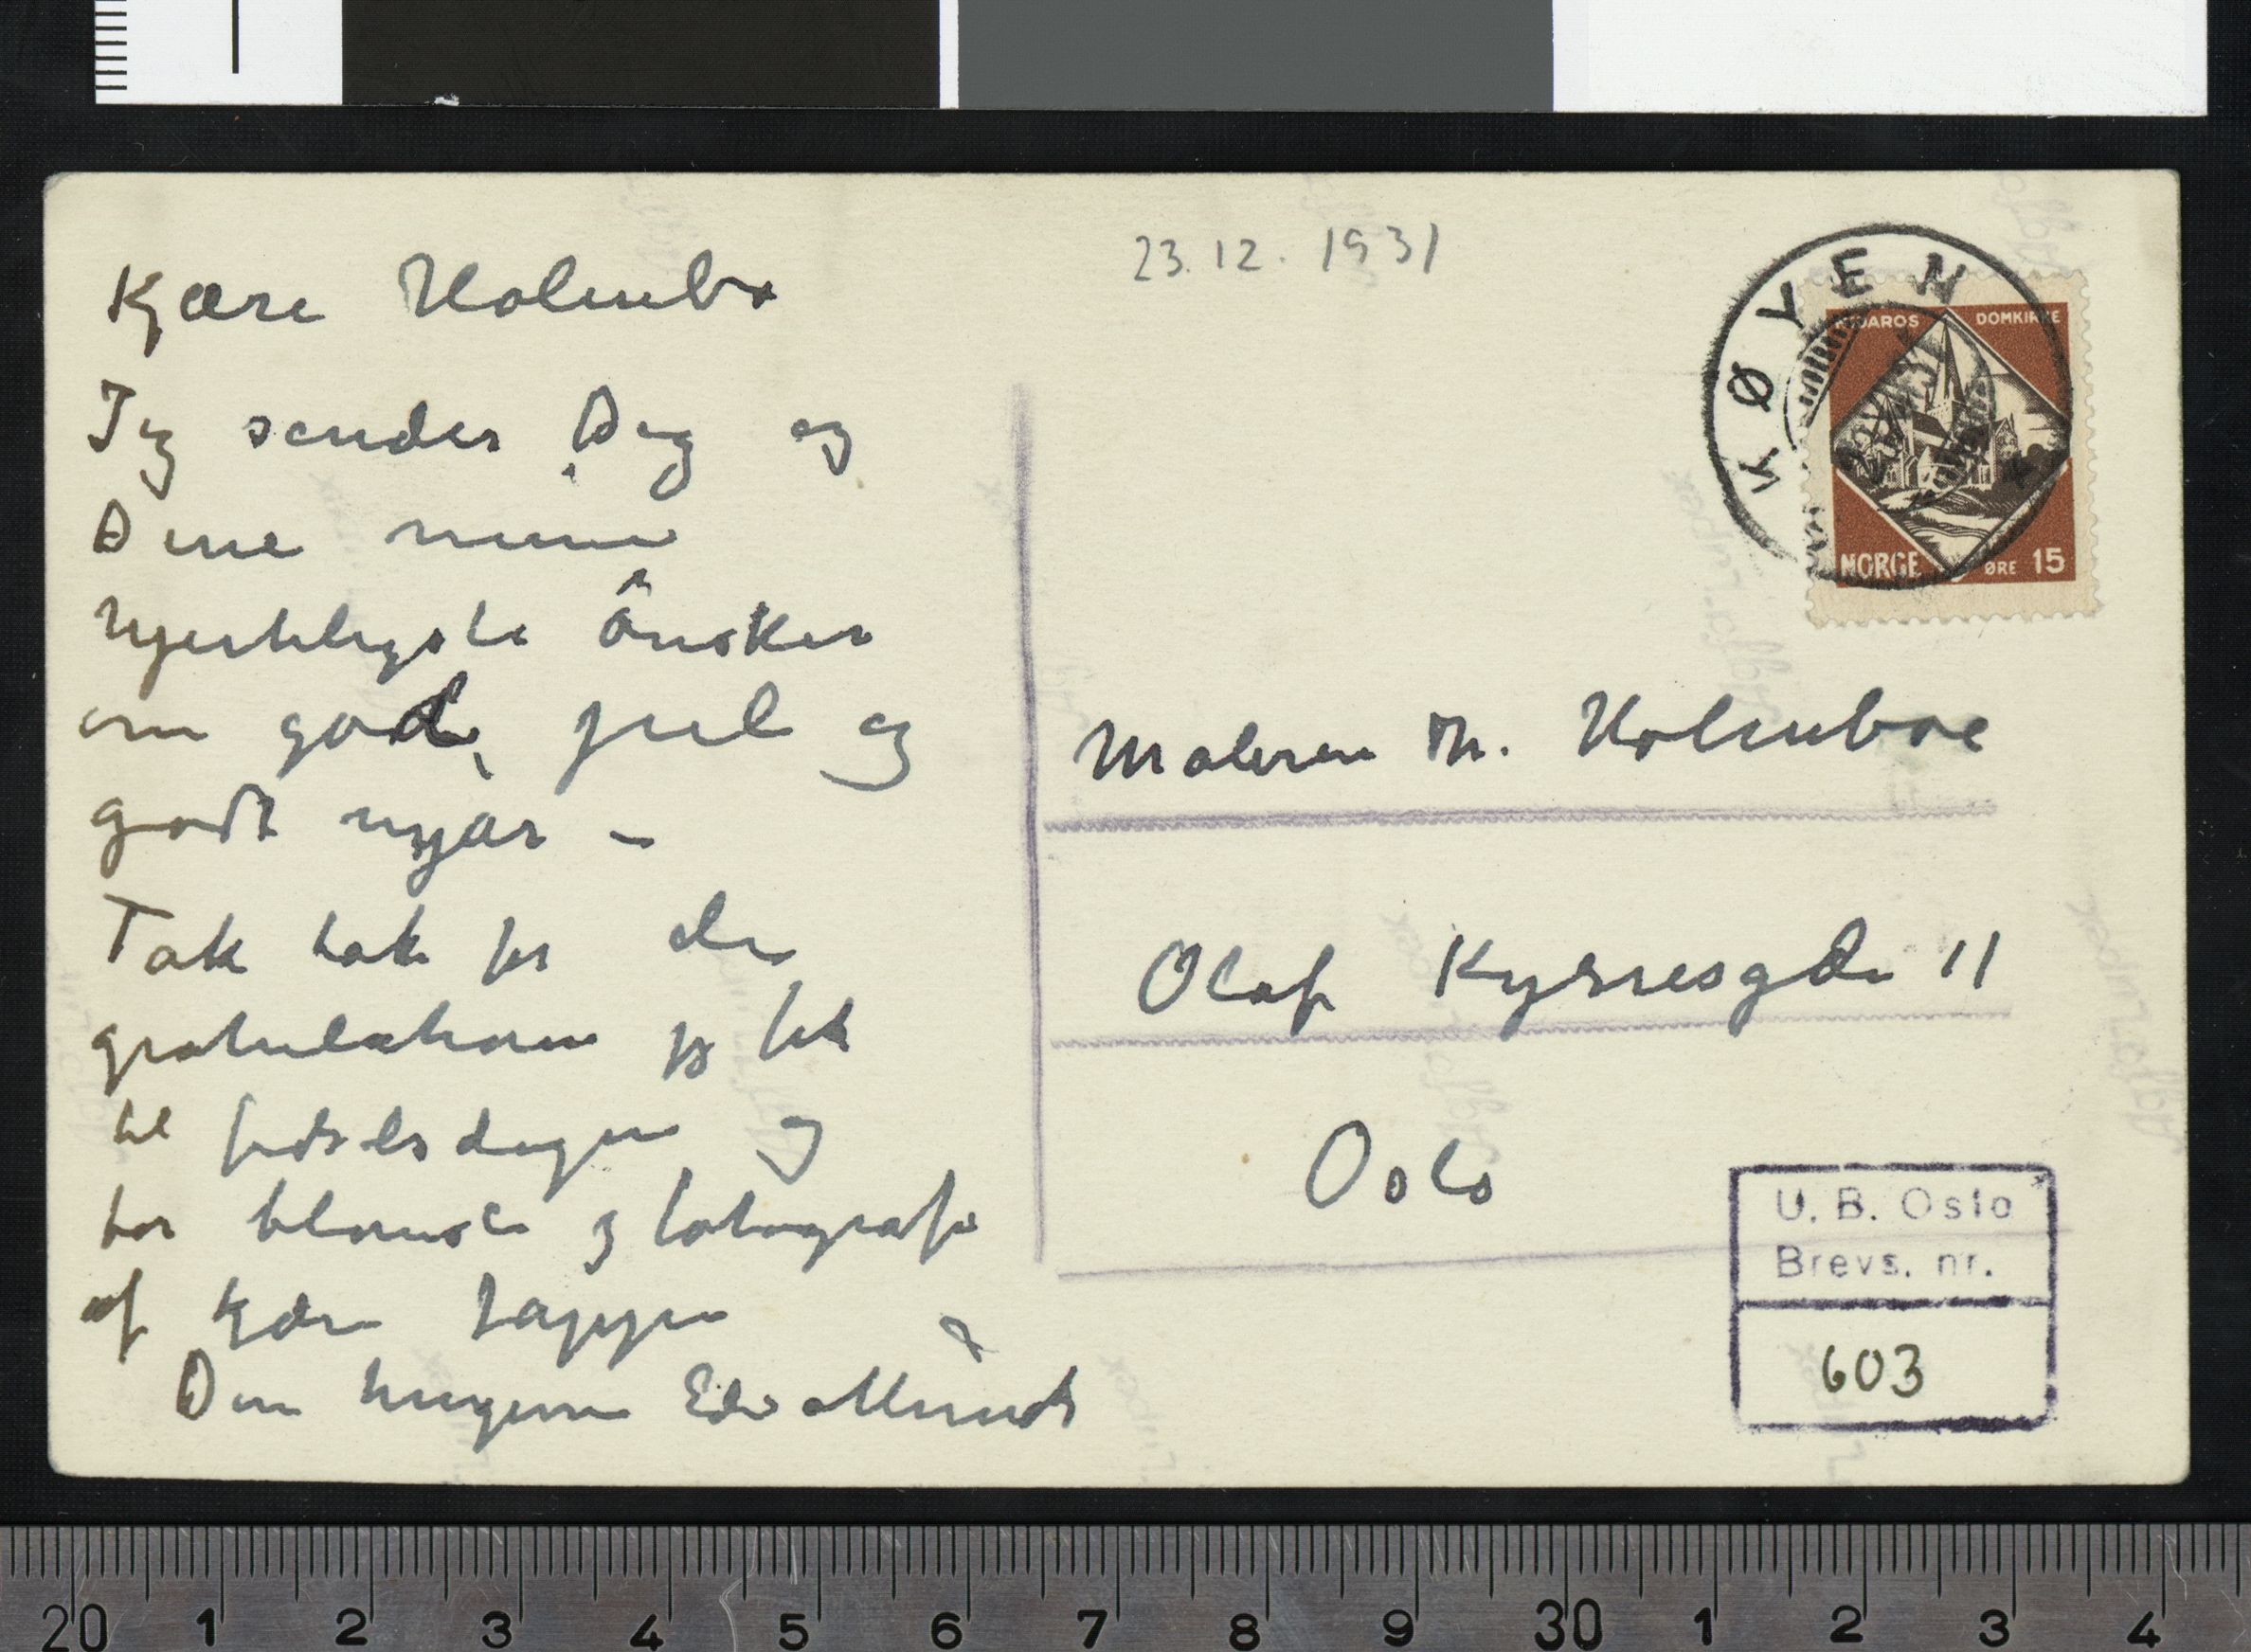 Kjære Holmbo
Jeg sender Dig og
Dine mine
hjerteligste Ønsker
om god jul og
godt nyår –
Tak tak for de
gratulationer jeg fik
til fødselsdagen og
for blomster og fotografi
af kjære Pappa
Din hengivne Edv Munch
23.12.1931
KØYEN
NIDAROS DOMKIRKE
NORGE ØRE 15
Maleren Th. Holmboe
Olaf Kyrresgde 11
Oslo
U. B. Oslo
Brevs. nr.
603
20 1 2 3 4 5 6 7 8 9 30 1 2 3 4